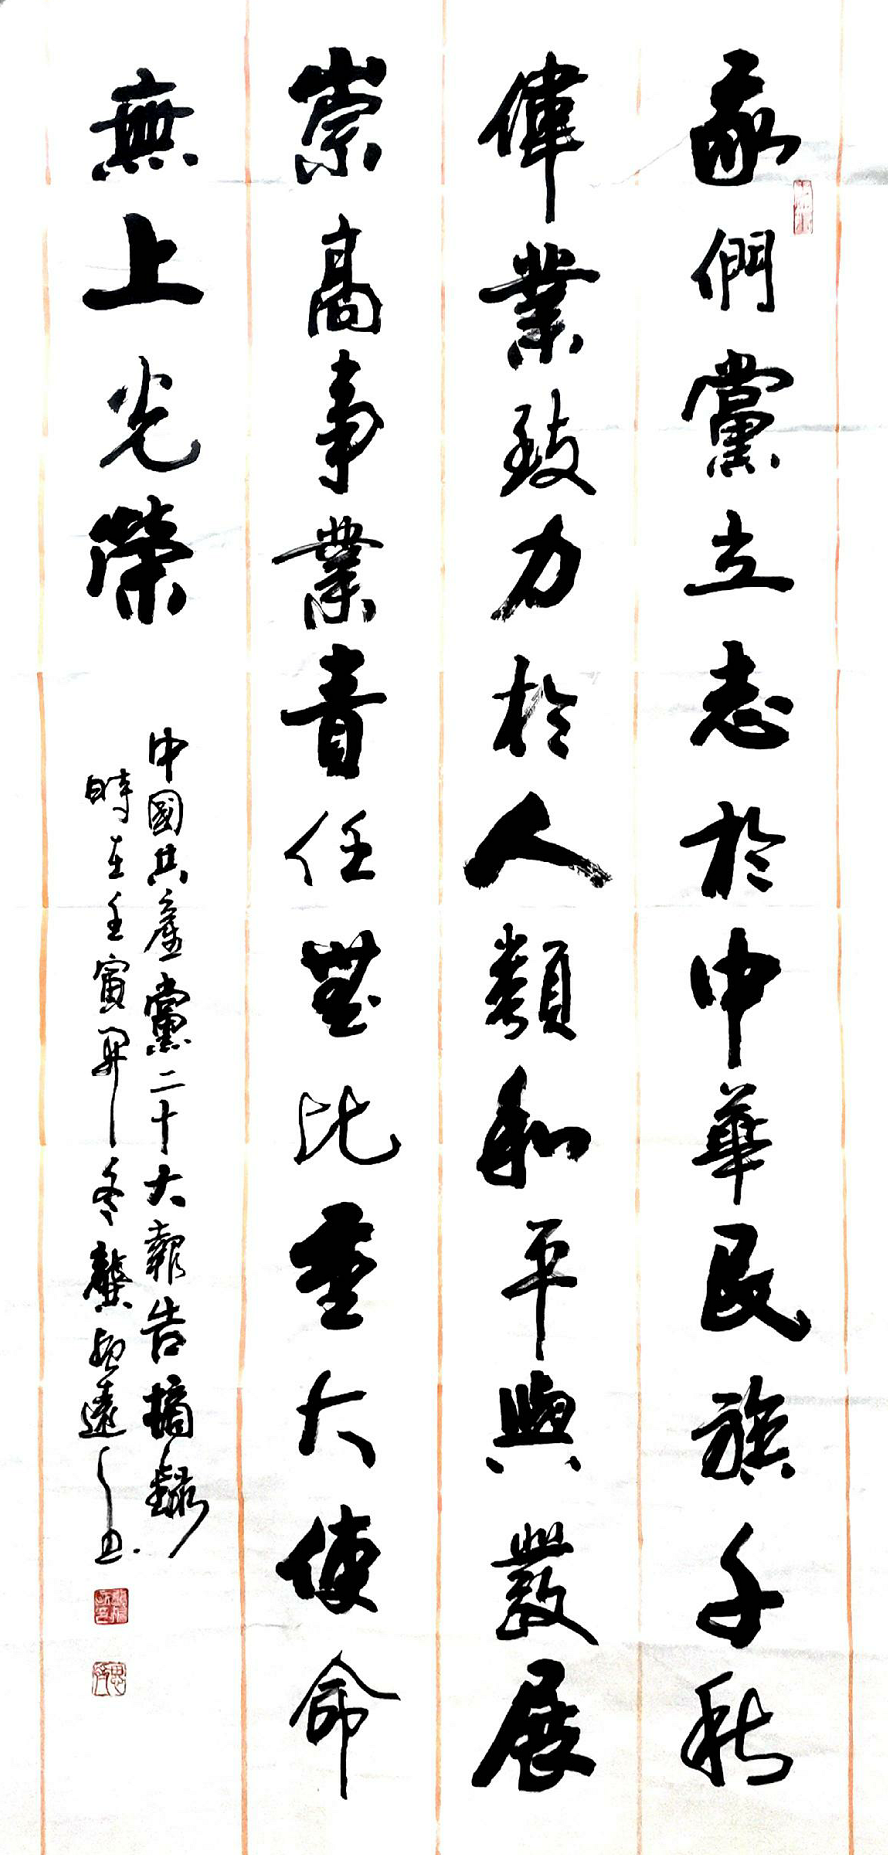 我們黨立志於中華民族千秋
偉業致力於人類和平與發展
崇高事業責任無比重大使命
無上光榮
中國共產黨二十大報告摘錄
時在壬寅年冬龔振遠書